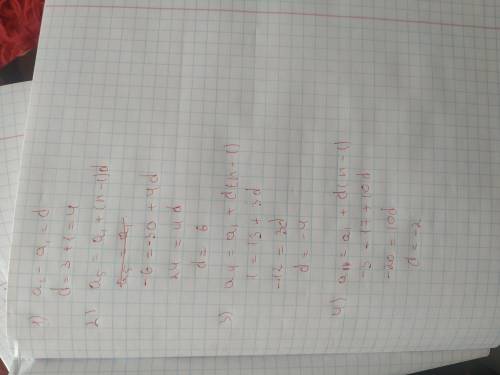 1) a₂ - a₁ = d
d = 3 + 1 = 4
2) a₅ = a₁ + (n-1)d
-6 = -30 + 4d
24 = 4d
d = 6
3) a₄ = a₁ + d(n-1)
1 = 13 + 3d
-12 = 3d
d = -4
4) a₁₁ = a₁ + d(n-1)
-3 = 17 + 10d
-20 = 10d
d = -2